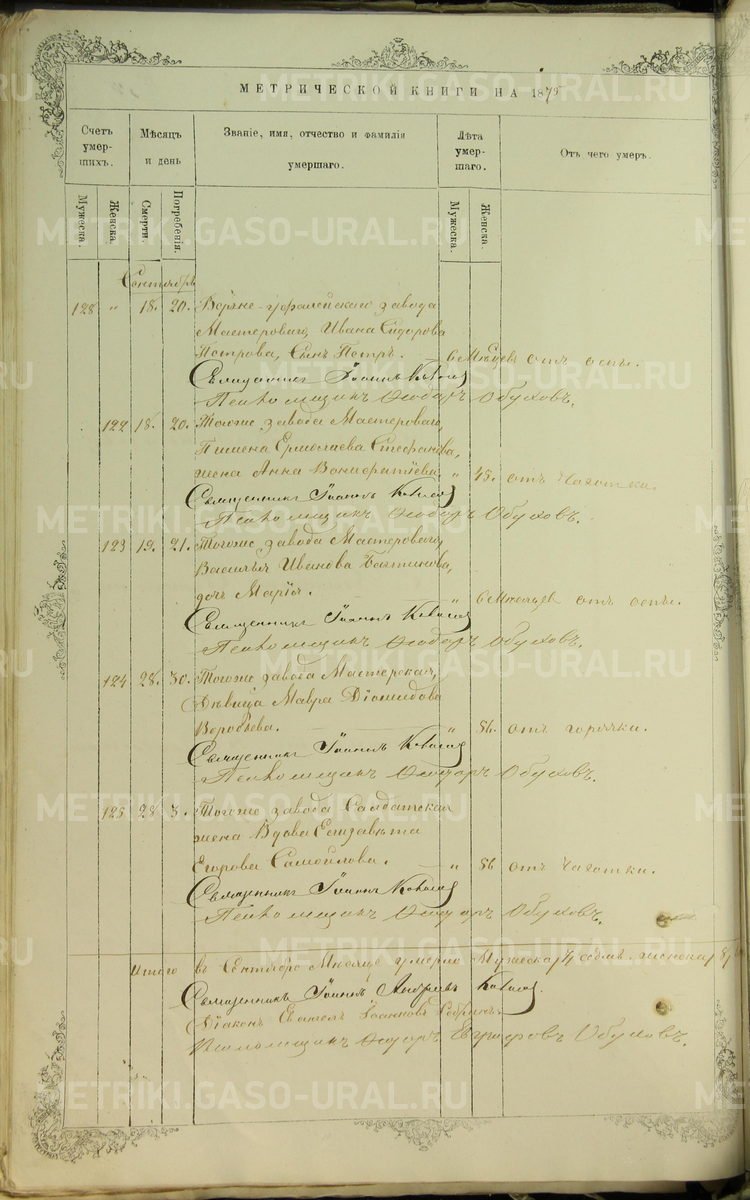 МЕТРИЧЕСКОЙ КНИГИ НА 1879
Счетъ умершихъ.
Мѣсяцъ и день
Званіе, имя, отчество и фамилія умершаго.
Лѣта умершаго.
Отъ чего умеръ.
Мужеска.
Женска.
Смерти.
Погребенія.
Мужеска.
Женска.
Сентябрь
128 " 18. 20. Верхне-уфалейскаго завода
Мастероваго, Ивана Сидорова
Петрова, Сынъ Петръ. 6 Мѣсяцевъ отъ оспы.
Священникъ Іоаннъ
Псаломщикъ Ѳеодоръ Обуховъ.
122 18. 20. Тогоже завода Мастероваго,
Пимена Ермолаева Стефанова,
жена Анна Вонифатіева, " 45. отъ Чахотки.
Священникъ Іоаннъ
Псаломщикъ Ѳеодоръ Обуховъ.
123 19. 21. Тогоже завода Мастероваго,
Василья Иванова
дочь Марія. " 6 Мѣсяцевъ отъ оспы.
Священникъ Іоаннъ
Псаломщикъ Ѳеодоръ Обуховъ.
124 28. 30. Тогоже завода Мастерская,
Дѣвица Мавра Діомидова
Воробьева. " 56. отъ горячки.
Священникъ Іоаннъ
Псаломщикъ Ѳеодоръ Обуховъ.
125 28 3. Тогоже завода Салдатская
жена Вдова Елизавета
Егорова Самойлова. " 56 отъ Чахотки.
Священникъ Іоаннъ
Псаломщикъ Ѳеодоръ Обуховъ.
Итого въ Сентябрѣ Мѣсяцѣ умерло Мужеска 7 женска 8
Священникъ Іоаннъ Андреевъ
Діаконъ Іоанновъ
Псаломщикъ Ѳеодоръ Обуховъ.
METRIKI.GASO-URAL.RU